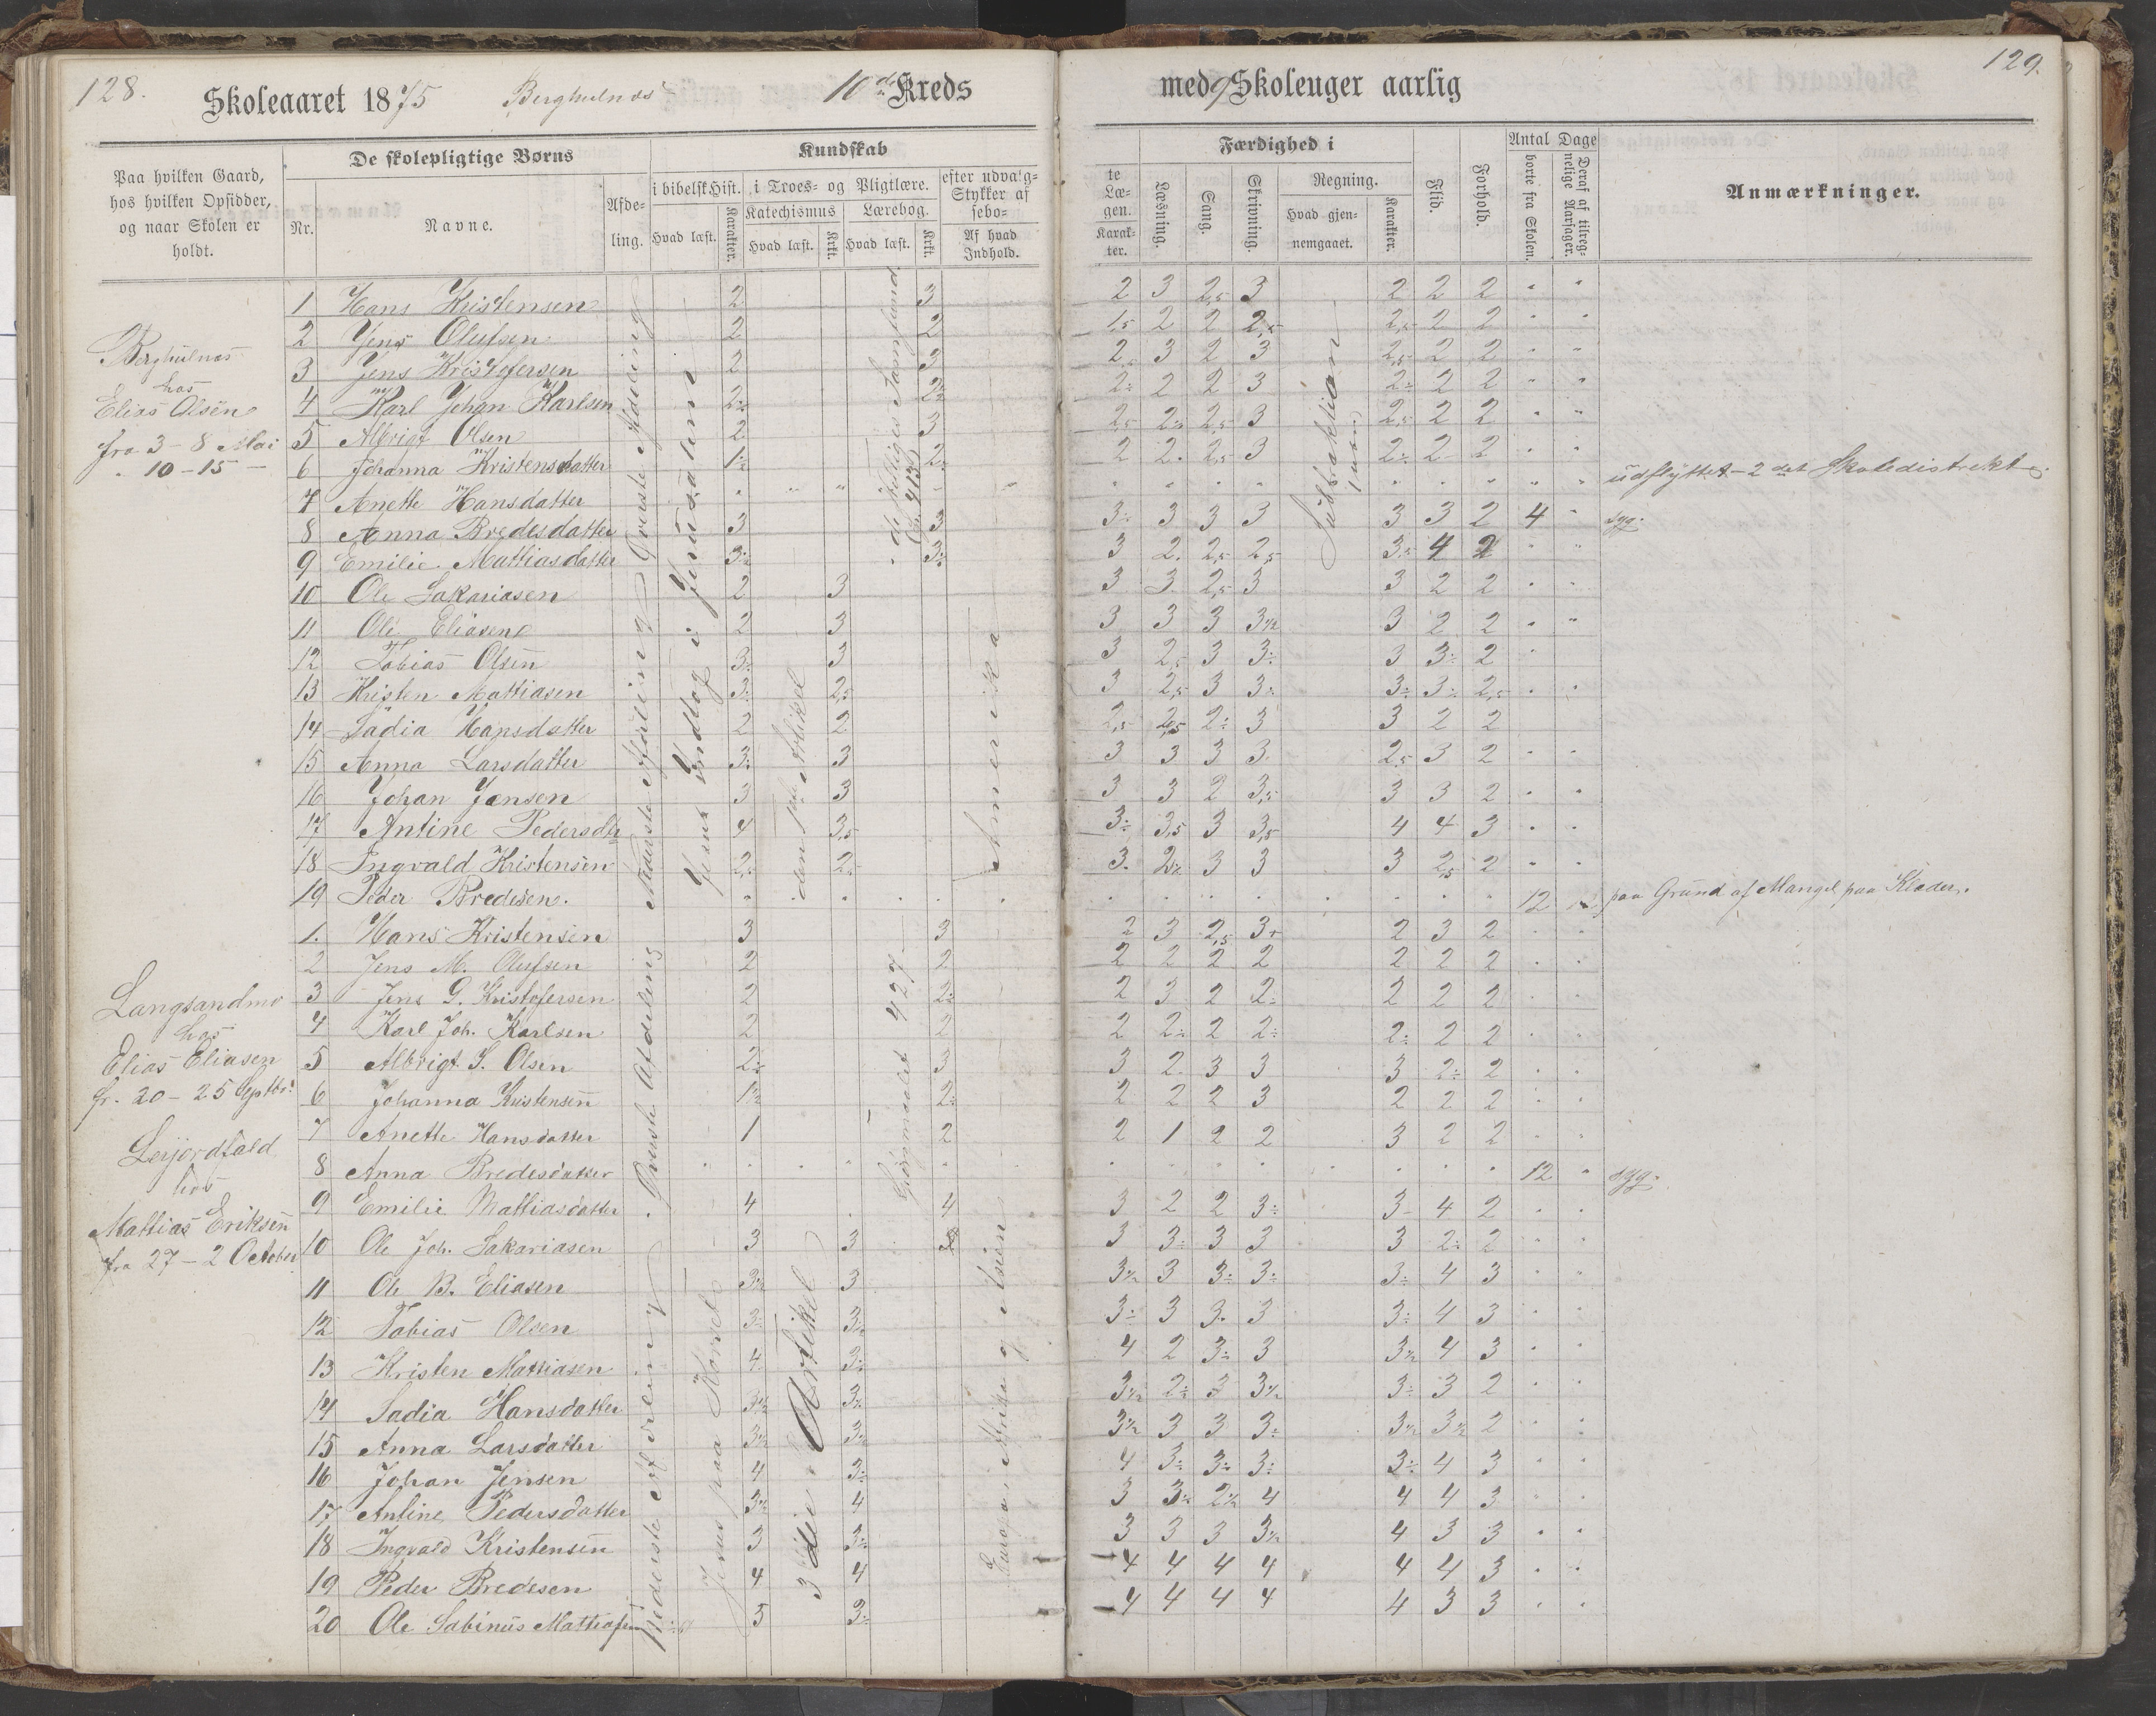 128.
Skoleaaret 1875 Berghulnæs 10de Kreds
med 9 Skoleuger aarlig
129.
Paa hvilken Gaard,
hos hvilken Opsidder,
og naar Skolen er
holdt.
De skolepligtige Børns
Nr.
Navne.
Afde-
ling.
Kundskab
i bibelsk Hist.
Hvad læst.
Karakter.
i Troes- og Pligtlære.
Katechismus
Hvad læst.
Krkt.
Lærebog.
Hvad læst.
Krkt.
efter udvalg-
Stykker af
sebo-
Af hvad
Indhold.
te
Læ-
gen.
Karak-
ter.
Færdighed i
Læsning.
Sang.
Skrivning.
Regning.
Hvad gjen-
nemgaaet.
Karakter.
Flid.
Forhold.
Antal Dage
borte fra Skolen.
Deraf af tilreg-
nelige Aarsager.
Anmærkninger.
Berghulnæs
hos
Elias Olsen
fra 3 - 8 Mai
" 10-15 -
Øverste Afdeling
Nederste Afdeling
Jesus Indtog i Jerusalem
den 1ste Artikel
de helliges Samfund
Amerika
Subtraktion
1 Hans Kristensen 2 3 2 3 2,5 3 2 2 2 " "
2 Jens Olufsen 2 2 1,5 2 2 2,5 2,5 2 2 " "
3 Jens Kristofersen 2 3 2 3 2 3 2,5 2 2 " "
4 Karl Johan Karlsen 2÷ 2÷ 2÷ 2 2 3 2÷ 2 2 " "
5 Albrigt Olsen 2 3 2,5 2÷ 2,5 3 2,5 2 2 " "
6 Johanna Kristensdatter 1÷ 2÷ 2 2 2,5 3 2÷ 2 2 " "
7 Anette Hansdatter udflyttet - 2det Skoledistrekt
8 Anna Bredesdatter 3 3 3÷ 3 3 3 3 3 2 4 " syg.
9 Emilie Mattiasdatter 3÷ 3÷ 3 2 2,5 2,5 3÷ 4 2 " "
10 Ole Sakariasen 2 3 3 3 2,5 3 3 2 2 " "
11 Ole Eliasen 2 3 3 3 3 3½ 3 2 2 " "
12 Tobias Olsen 3÷ 3 3 2,5 3 3÷ 3 3÷ 2 "
13 Kristen Mattiasen 3÷ 2,5 3 2,5 3 3÷ 3÷ 3÷ 2,5 " "
14 Sadia Hansdatter 2 2 2,5 2,5 2÷ 3 3 2 2
15 Anna Larsdatter 3÷ 3 3 3 3 3 2,5 3 2 " "
16 Johan Jensen 3 3 3 3 2 3,5 3 3 2 " "
17 Antine Pedersdtr 4 3,5 3÷ 3,5 3 3,5 4 4 3 " "
18 Ingvald Kristensen 2,5 2÷ 3 2½ 3 3 3 2,5 2 " "
19 Peder Bredesen. 12 12 paa Grund af Mangel paa Klæder.
Langsandmo
hos
Elias Eliasen
fr. 20 - 25 Septbr.
Leijordfald
hos
Mattias Eriksen
fra 27 - 2 October
Øverste Afdeling
nederste Afdeling
Jesus paa Korset
3die Artikel
Spørsmaalet 427
Europa, Afrika og Asien
1. Hans Kristensen 3 3 2 3 2,5 3+ 2 3 2 " "
2 Jens M. Olufsen 2 2 2 2 2 2 2 2 2 " "
3 Jens G. Kristofersen 2 2÷ 2 3 2 2÷ 2 2 2 " "
4 Karl Joh. Karlsen 2 2 2 2÷ 2 2÷ 2÷ 2 2 " "
5 Albrigt S. Olsen 2÷ 3 3 2 3 3 3 2÷ 2 " "
6 Johanna Kristensen 1½ 2÷ 2 2 2 3 2 2 2 " "
7 Anette Hansdatter 1 2 2 1 2 2 3 2 2 " "
8 Anna Bredesdatter 12 " syg.
9 Emilie Mattiasdatter 4 4 3 2 2 3÷ 3- 4 2 " "
10 Ole Joh. Sakariasen 3 3 3 3÷ 3 3 3 2÷ 2 " "
11 Ole B. Eliasen 3½ 3 3½ 3 3÷ 3÷ 3÷ 4 3 " "
12 Tobias Olsen 3÷ 3½ 3÷ 3 3 3 3÷ 4 3 " "
13 Kristen Mattiasen 4 3÷ 4 2 3÷ 3 3½ 4 3 " "
14 Sadia Hansdatter 3½ 3½ 3½ 2÷ 3 3½ 3÷ 3 2 " "
15 Anna Larsdatter 3½ 3½ 3½ 3 3 3÷ 3½ 3½ 2 " "
16 Johan Jensen 4 3÷ 4 3÷ 3÷ 3÷ 3÷ 4 3 " "
17 Antine Pedersdatter 3½ 4 3 3½ 2½ 4 4 4 3 " "
18 Ingvald Kristensen 3 3÷ 3 3 3 3½ 4 3 3 " "
19 Peder Bredesen 4 4 4 4 4 4 4 4 3 " "
20 Ole Sabinus Mattiasen 5 3÷ 4 4 4 4 4 3 3 " "